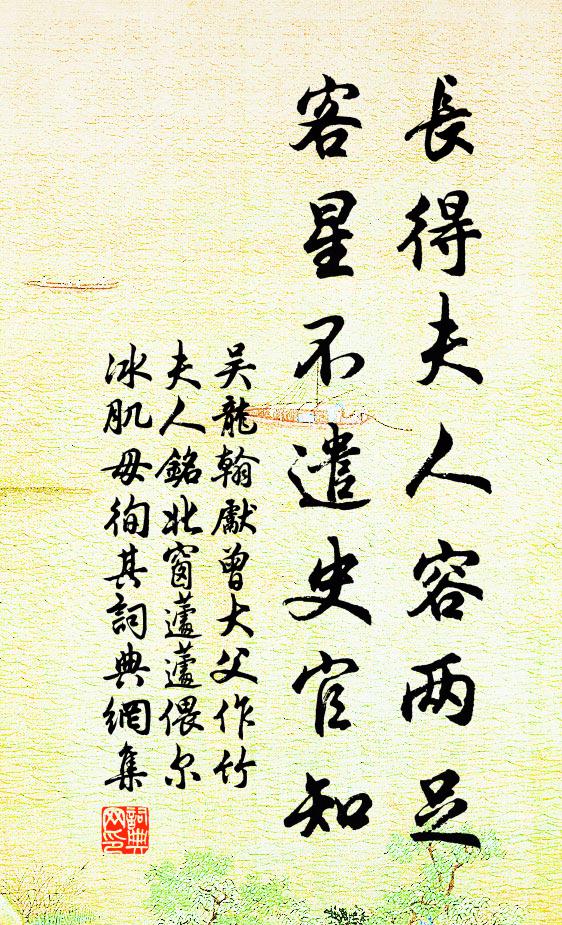 長得夫人容两足
客星不遣史官知
吴龍翰獻曾大父作竹
夫人銘北窗蘧蘧偎尔
冰肌毋徇其詞典網集
詞典
网印